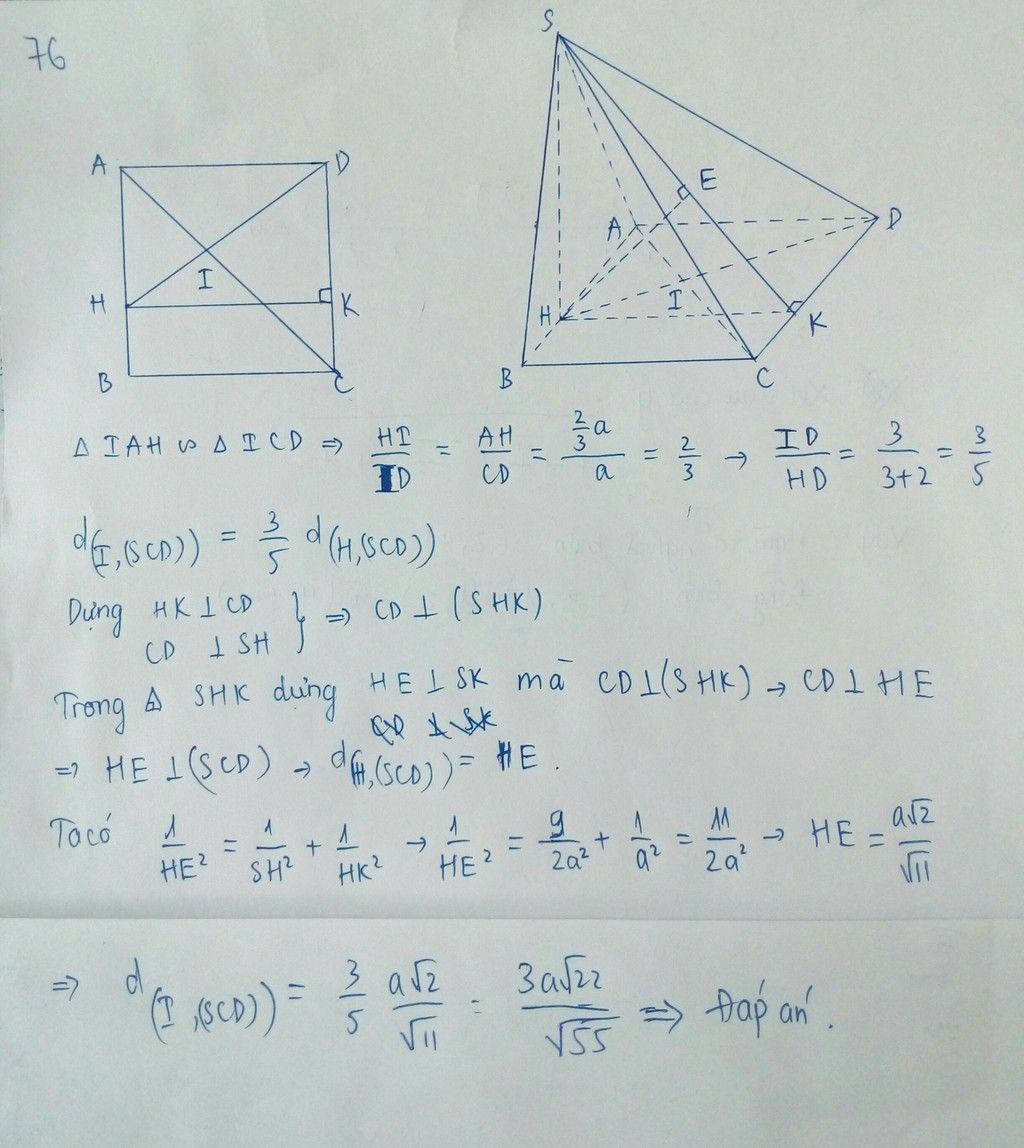 76
S
A D
E
A D
I
H K
H I
K
B C
B C
Δ IAH ∽ Δ ICD ⇒ HI/ID = AH/CD = (2/3 a)/a = 2/3 → ID/HD = 3/(3+2) = 3/5
d(I,(SCD)) = 3/5 d(H,(SCD))
Dựng HK ⊥ CD
CD ⊥ SH } ⇒ CD ⊥ (SHK)
Trong Δ SHK dựng HE ⊥ SK mà CD ⊥ (SHK) → CD ⊥ HE
⇒ HE ⊥ (SCD) → d(H,(SCD)) = HE.
Ta có 1/HE² = 1/SH² + 1/HK² → 1/HE² = 9/2a² + 1/a² = 11/2a² → HE = a√2/√11
⇒ d(I,(SCD)) = 3/5 a√2/√11 = 3a√22/√55 ⇒ Đáp án.